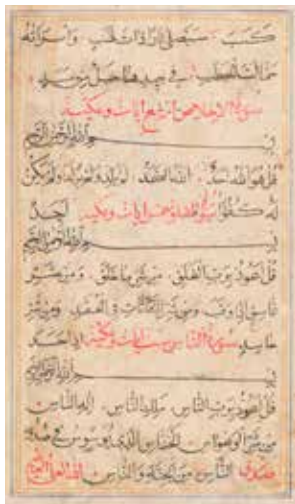 كسب سيصلى نارا ذات لهب وامرأته
حمالة الحطب في جيدها حبل من مسد
سورة الاخلاص اربع ايات مكية
بسم الله الرحمن الرحيم
قل هو الله احد الله الصمد لم يلد ولم يولد ولم يكن
له كفوا سورة الفلق خمس ايات مكية احد
بسم الله الرحمن الرحيم
قل اعوذ برب الفلق من شر ما خلق ومن شر
غاسق اذا وقب ومن شر النفاثات في العقد ومن شر
حاسد سورة الناس ست ايات مكية اذا حسد
بسم الله الرحمن الرحيم
قل اعوذ برب الناس ملك الناس اله الناس
من شر الوسواس الخناس الذي يوسوس في صدور
صدق الناس من الجنة والناس الله العلي العظيم